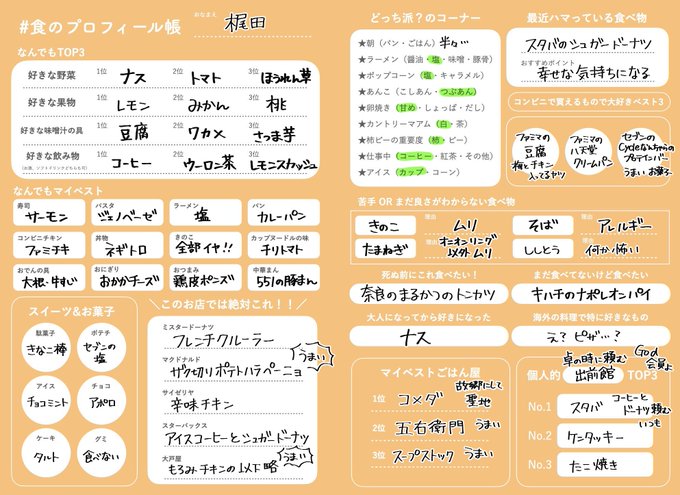 #食のプロフィール帳
おなまえ 梶田
なんでもTOP3
好きな野菜 1位 ナス 2位 トマト 3位 ほうれん草
好きな果物 1位 レモン 2位 みかん 3位 桃
好きな味噌汁の具 1位 豆腐 2位 ワカメ 3位 さつま芋
好きな飲み物 1位 コーヒー 2位 ウーロン茶 3位 レモンスカッシュ
(お酒、ソフトドリンクどちらも可)
なんでもマイベスト
寿司 サーモン
パスタ ジェノベーゼ
ラーメン 塩
パン カレーパン
コンビニチキン ファミチキ
丼物 ネギトロ
きのこ 全部イヤ!!
カップヌードルの味 チリトマト
おでんの具 大根・牛すじ
おにぎり おかかチーズ
おつまみ 鶏皮ポンズ
中華まん 551の豚まん
スイーツ&お菓子
駄菓子 きなこ棒
ポテチ セブンの塩
アイス チョコミント
チョコ アポロ
ケーキ タルト
グミ 食べない
＼このお店では絶対これ！！／
ミスタードーナツ
フレンチクルーラー
マクドナルド
ザク切りポテトハラペーニョ うまい
サイゼリヤ
辛味チキン
スターバックス
アイスコーヒーとシュガードーナツ
大戸屋
もろみチキンの以下略 うまい
どっち派？のコーナー
★朝（パン・ごはん）半々
★ラーメン（醤油・塩・味噌・豚骨）
★ポップコーン（塩・キャラメル）
★あんこ（こしあん・つぶあん）
★卵焼き（甘め・しょっぱ・だし）
★カントリーマアム（白・茶）
★柿ピーの重要度（柿・ピー）
★仕事中（コーヒー・紅茶・その他）
★アイス（カップ・コーン）
最近ハマっている食べ物
スタバのシュガードーナツ
おすすめポイント
幸せな気持ちになる
コンビニで買えるもので大好きベスト3
ファミマの豆腐 梅とチキン入ってるヤツ
ファミマの八天堂クリームパン
セブンのCycleなんちゃらのプロテインバー うまいお菓子
苦手 OR まだ良さがわからない食べ物
きのこ 理由 ムリ
そば 理由 アレルギー
たまねぎ 理由 オニオンリング以外ムリ
ししとう 理由 何か怖い
死ぬ前にこれ食べたい！
奈良のまるかつのトンカツ
まだ食べてないけど食べたい
キハチのナポレオンパイ
大人になってから好きになった
ナス
海外の料理で特に好きなもの
え？ピザ…？
マイベストごはん屋
1位 コメダ 故郷にして聖地
2位 五右衛門 うまい
3位 スープストック うまい
個人的 卓の時に頼む出前館 TOP3
God会員よ
No.1 スタバ コーヒーとドーナツ頼むいつも
No.2 ケンタッキー
No.3 たこ焼き